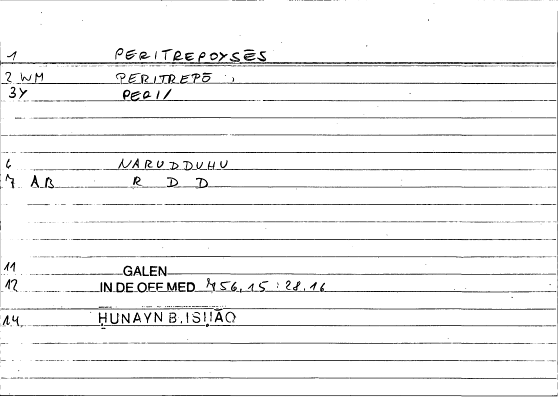 1 PERITREPOYSĒS
2 WM PERITREPŌ ;
3Y PERI/
6 NARUDDUHU
7 AB R D D
11 GALEN
12 IN DE OFF MED 756,15 : 28,16
14 ḤUNAYN B. ISḤĀQ